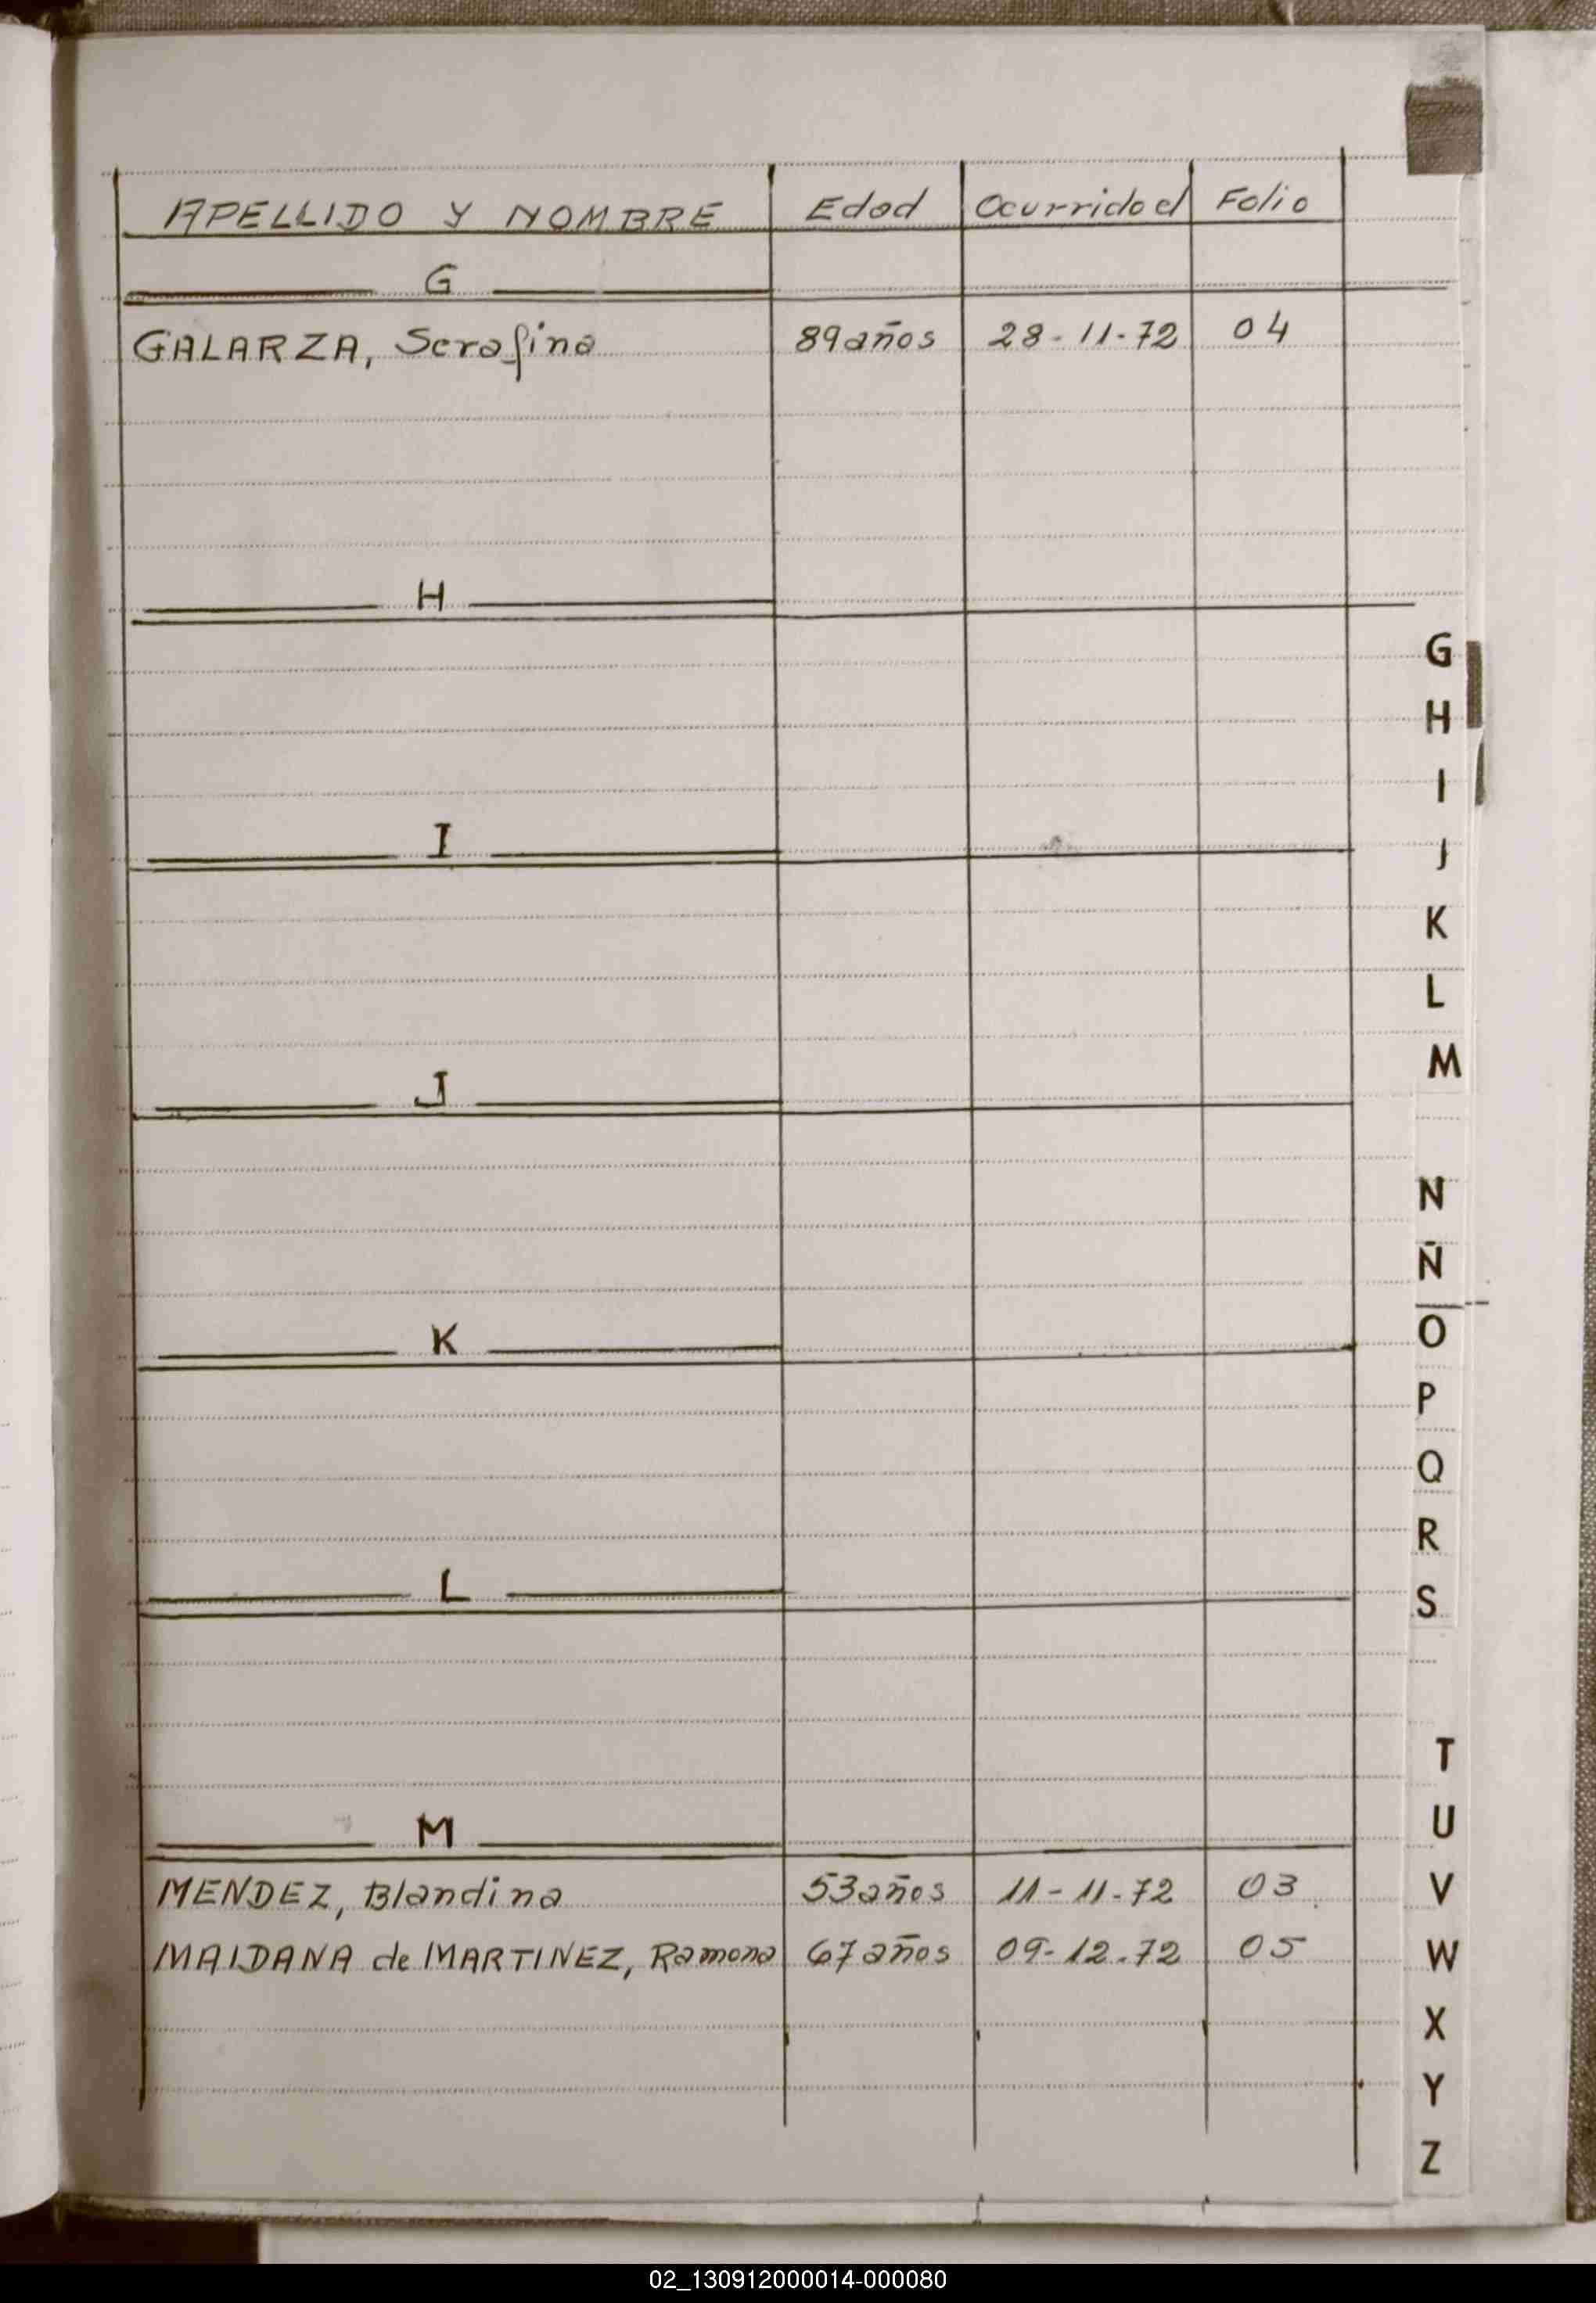 APELLIDO Y NOMBRE Edad Ocurrido el Folio
G
GALARZA, Serafina 89 años 28-11-72 04
H
I
J
K
L
M
MENDEZ, Blandina 53 años 11-11-72 03
MAIDANA de MARTINEZ, Ramona 67 años 09-12-72 05
G
H
I
J
K
L
M
N
Ñ
O
P
Q
R
S
T
U
V
W
X
Y
Z
02_130912000014-000080